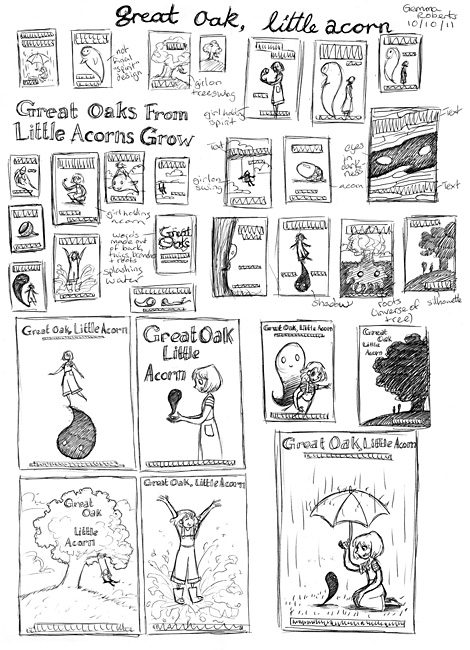 Great Oak, little acorn
Gemma
Roberts
10/10/11
not
final
"spirit"
design
girl on
treeswing
girl holding
spirit
Text
Great Oaks From
Little Acorns Grow
Text
eyes
in
dark-
ness
acorn
Text
girl on
swing
girl holding
acorn
words
made out
of bark,
twigs, branches
+ roots
Great
Oaks
splashing
water
shadow
roots
(inverse of
tree)
silhouette
Great Oak, Little Acorn
Great Oak
Little
Acorn
Great Oak, Little Acorn
Great Oak
Little
Acorn
Great
Oak
Little
Acorn
Great Oak, Little Acorn
Great Oak, Little Acorn